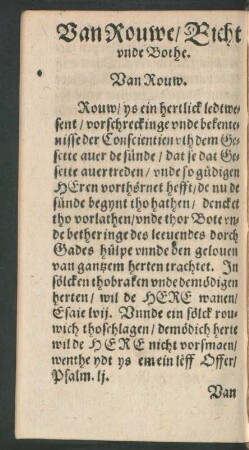 Van Rouwe/ Bicht
vnde Bothe.
Van Rouw.
Rouw/ ys ein hertlick ledtwe-
sent/ vorschreckinge vnde bekente-
nisse der Conscientien vth dem Ge-
sette auer de sünde/ dat se dat Ge-
sette auertreden/ vnde so gůdigen
HEren vorthörnet hefft/ de nu de
sünde begynt tho hathen/ dencket
tho vorlathen/ vnde thor Bote vn-
de betheringe des leeuendes dorch
Gades hůlpe vnnde den gelouen
van gantzem herten trachtet. In
sölcken thobraken vnde demödigen
herten/ wil de HERE wanen/
Esaie lvij. Vunde ein sölck rou-
wich thoschlagen/ demödich herte
wil de HERE nicht vorsmaen/
wenthe ydt ys em ein lêff Offer/
Psalm. lj.
Van